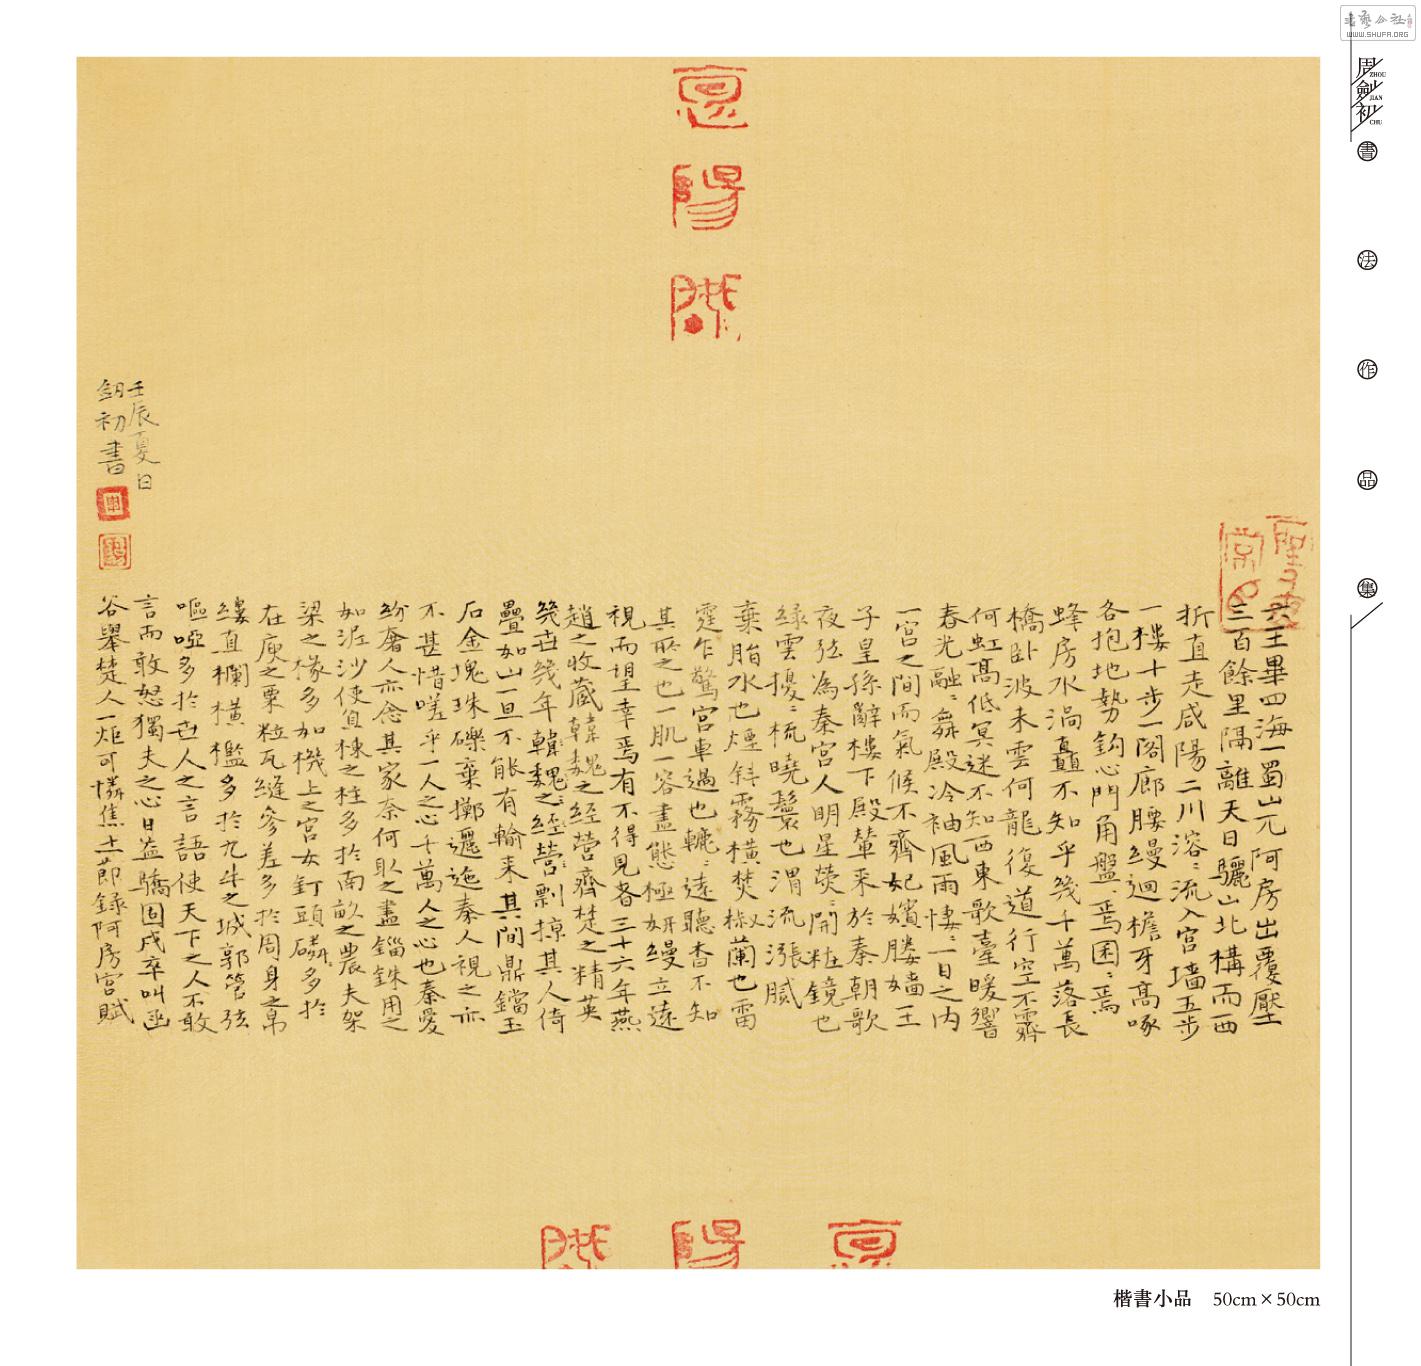 六王畢四海一蜀山兀阿房出覆壓
三百餘里隔離天日驪山北構而西
折直走咸陽二川溶〻流入宮墻五步
一樓十步一閣廊腰縵迴檐牙高啄
各抱地勢鈎心鬥角盤〻焉囷〻焉
蜂房水渦矗不知乎幾千萬落長
橋卧波未雲何龍復道行空不霽
何虹高低冥迷不知西東歌臺暖響
春光融〻舞殿冷袖風雨悽〻一日之内
一宮之間而氣候不齊妃嬪媵嬙王
子皇孫辭樓下殿輦来於秦朝歌
夜弦為秦宮人明星熒〻開粧鏡也
緑雲擾〻梳曉鬟也渭流漲膩
棄脂水也煙斜霧横焚椒蘭也雷
霆乍驚宮車過也轆〻遠聽杳不知
其所之也一肌一容盡態極妍縵立遠
視而望幸焉有不得見者三十六年燕
趙之收蔵韓魏之經營齊楚之精英
幾世幾年韓魏之經營剽掠其人倚
疊如山一旦不能有輸来其間鼎鐺玉
石金塊珠礫棄擲邐迤秦人視之亦
不甚惜嗟乎一人之心千萬人之心也秦愛
紛奢人亦念其家奈何取之盡錙銖用之
如泥沙使負棟之柱多於南畝之農夫架
梁之椽多如機上之宮女釘頭磷〻多於
在庾之粟粒瓦縫參差多於周身之帛
縷直欄横檻多於九牛之城郭管弦
嘔啞多於世人之言語使天下之人不敢
言而敢怒獨夫之心日益驕固戍卒叫函
谷舉楚人一炬可憐焦土節録阿房宮賦
壬辰夏日
劍初書
周劍初
ZHOU
JIAN
CHU
書法作品集
楷書小品 50cm×50cm
WWW.SHUFA.ORG